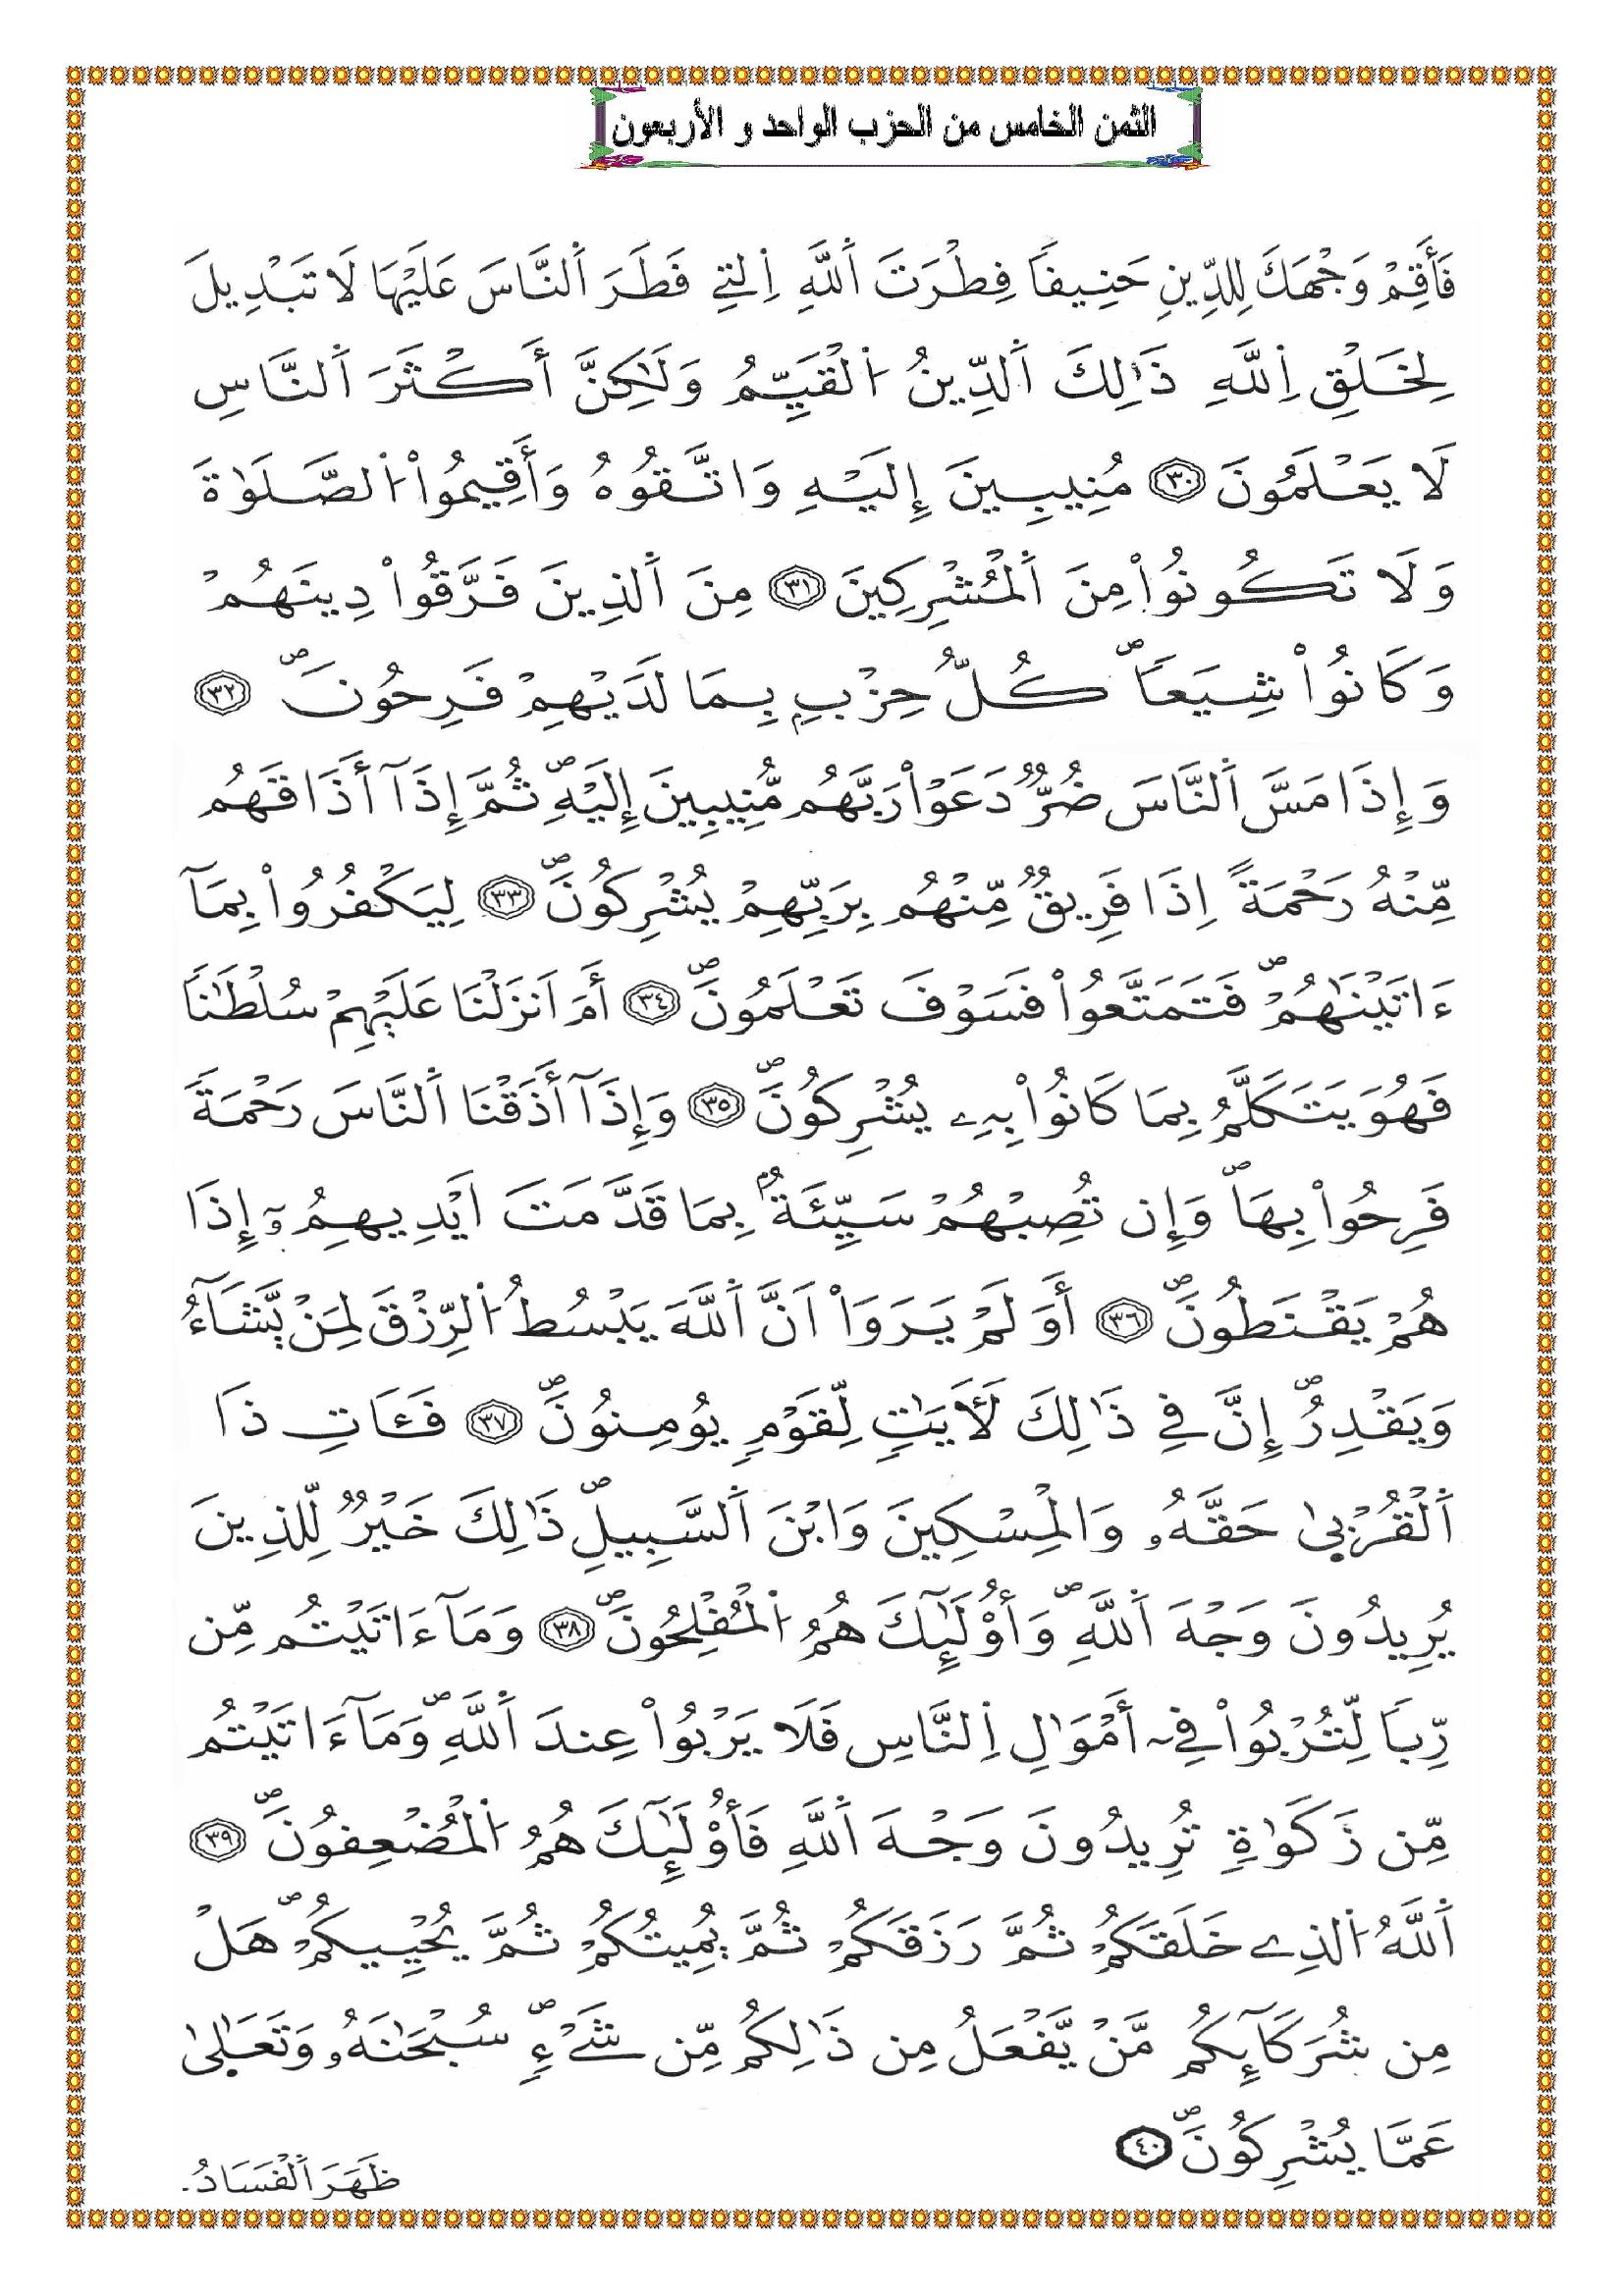 الثمن الخامس من الحزب الواحد و الأربعون
فَأَقِمْ وَجْهَكَ لِلدِّينِ حَنِيفاً فِطْرَتَ اَ۬للَّهِ اِ۬لتِے فَطَرَ اَ۬لنَّاسَ عَلَيْهَا لَا تَبْدِيلَ
لِخَلْقِ اِ۬للَّهِ ذَٰلِكَ اَ۬لدِّينُ اُ۬لْقَيِّمُ وَلَٰكِنَّ أَكْثَرَ اَ۬لنَّاسِ
لَا يَعْلَمُونَ ٣٠ مُنِيبِينَ إِلَيْهِ وَاتَّقُوهُ وَأَقِيمُواْ اُ۬لصَّلَوٰةَ
وَلَا تَكُونُواْ مِنَ اَ۬لْمُشْرِكِينَ ٣١ مِنَ اَ۬لذِينَ فَرَّقُواْ دِينَهُمْ
وَكَانُواْ شِيَعاًۖ كُلُّ حِزْبِۢ بِمَا لَدَيْهِمْ فَرِحُونَۖ ٣٢
وَإِذَا مَسَّ اَ۬لنَّاسَ ضُرٌّ دَعَوْاْ رَبَّهُم مُّنِيبِينَ إِلَيْهِۖ ثُمَّ إِذَآ أَذَاقَهُم
مِّنْهُ رَحْمَةً اِذَا فَرِيقٌ مِّنْهُم بِرَبِّهِمْ يُشْرِكُونَۖ ٣٣ لِيَكْفُرُواْ بِمَآ
ءَاتَيْنَٰهُمْۖ فَتَمَتَّعُواْ فَسَوْفَ تَعْلَمُونَۖ ٣٤ أَمَ اَنزَلْنَا عَلَيْهِمْ سُلْطَٰناً
فَهُوَ يَتَكَلَّمُ بِمَا كَانُواْ بِهِۦ يُشْرِكُونَۖ ٣٥ وَإِذَآ أَذَقْنَا اَ۬لنَّاسَ رَحْمَةً
فَرِحُواْ بِهَاۖ وَإِن تُصِبْهُمْ سَيِّئَةُۢ بِمَا قَدَّمَتَ اَيْدِيهِمُۥٓ إِذَا
هُمْ يَقْنَطُونَۖ ٣٦ أَوَلَمْ يَرَوَاْ اَنَّ اَ۬للَّهَ يَبْسُطُ اُ۬لرِّزْقَ لِمَنْ يَّشَآءُ
وَيَقْدِرُۖ إِنَّ فِے ذَٰلِكَ لَأٓيَٰتٖ لِّقَوْمٖ يُومِنُونَۖ ٣٧ فَـَٔاتِ ذَا
اَ۬لْقُرْب۪ىٰ حَقَّهُۥ وَالْمِسْكِينَ وَابْنَ اَ۬لسَّبِيلِۖ ذَٰلِكَ خَيْرٌ لِّلذِينَ
يُرِيدُونَ وَجْهَ اَ۬للَّهِۖ وَأُوْلَٰٓئِكَ هُمُ اُ۬لْمُفْلِحُونَۖ ٣٨ وَمَآ ءَاتَيْتُم مِّن
رِّباً لِّتُرْبُواْ فِےٓ أَمْوَٰلِ اِ۬لنَّاسِ فَلَا يَرْبُواْ عِندَ اَ۬للَّهِۖ وَمَآ ءَاتَيْتُم
مِّن زَكَوٰةٖ تُرِيدُونَ وَجْهَ اَ۬للَّهِ فَأُوْلَٰٓئِكَ هُمُ اُ۬لْمُضْعِفُونَۖ ٣٩
اَ۬للَّهُ اُ۬لذِے خَلَقَكُمْ ثُمَّ رَزَقَكُمْ ثُمَّ يُمِيتُكُمْ ثُمَّ يُحْيِيكُمْۖ هَلْ
مِن شُرَكَآئِكُم مَّنْ يَّفْعَلُ مِن ذَٰلِكُم مِّن شَےْءٖۖ سُبْحَٰنَهُۥ وَتَعَٰل۪ىٰ
عَمَّا يُشْرِكُونَۖ ٤٠
ظَهَرَ اَ۬لْفَسَادُ.